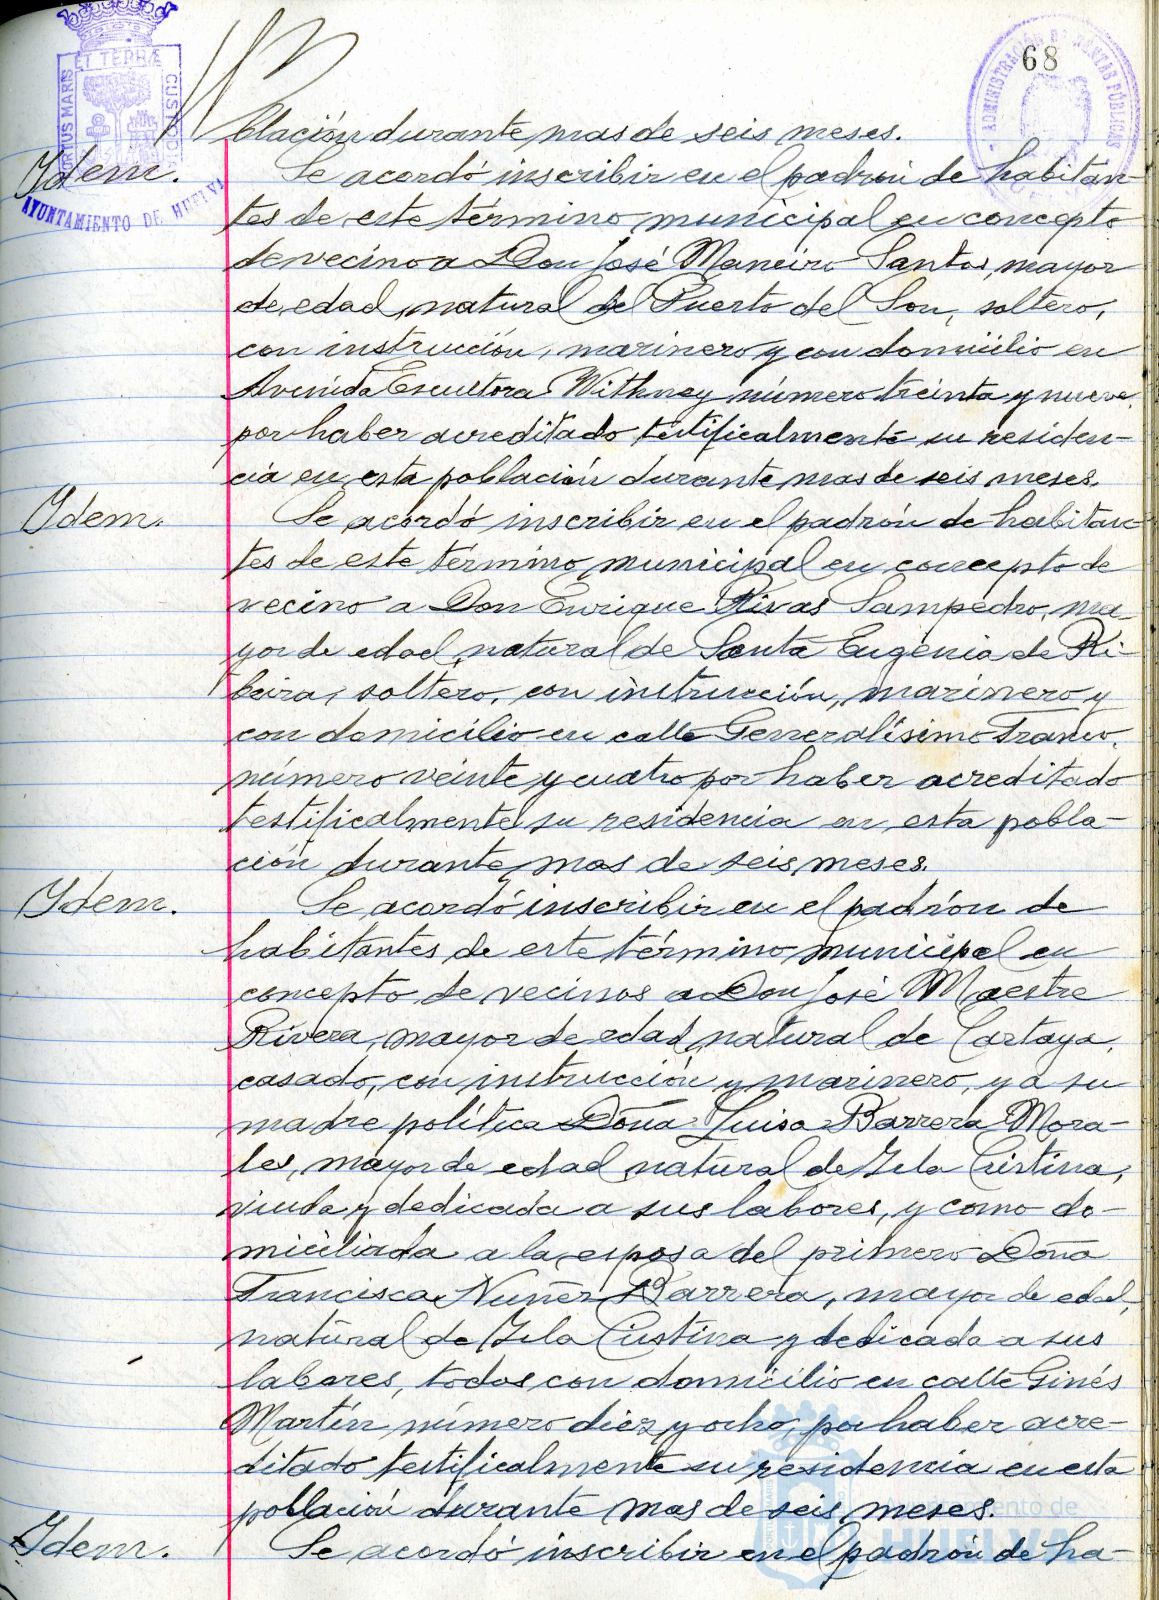 68
ET TERRÆ
PORTUS MARIS
CUSTODIA
AYUNTAMIENTO DE HUELVA
ADMINISTRACIÓN DE RENTAS PÚBLICAS
blación durante mas de seis meses.
Ydem. Se acordó inscribir en el padrón de habitan-
tes de este término municipal en concepto
de vecino a Don José Maneiro Santos, mayor
de edad, natural del Puerto del Son, soltero,
con instrucción, marinero y con domicilio en
Avenida Escultora Withney número treinta y nueve,
por haber acreditado testificalmente su residen-
cia en esta población durante mas de seis meses.
Ydem. Se acordó inscribir en el padrón de habitan-
tes de este término municipal en concepto de
vecino a Don Enrique Rivas Sampedro, ma-
yor de edad, natural de Santa Eugenia de Ri-
beira, soltero, con instrucción, marinero y
con domicilio en calle Generalísimo Franco,
número veinte y cuatro por haber acreditado
testificalmente su residencia en esta pobla-
ción durante mas de seis meses.
Ydem. Se acordó inscribir en el padrón de
habitantes de este término municipal en
concepto de vecinos a Don José Maestre
Rivera, mayor de edad, natural de Cartaya,
casado, con instrucción y marinero, y a su
madre política Doña Luisa Barrera Mora-
les, mayor de edad, natural de Isla Cristina,
viuda y dedicada a sus labores, y como do-
miciliada a la esposa del primero Doña
Francisca Nuñez Barrera, mayor de edad,
natural de Isla Cristina y dedicada a sus
labores, todos con domicilio en calle Ginés
Martín número diez y ocho, por haber acre-
ditado testificalmente su residencia en esta
población durante mas de seis meses.
Ydem. Se acordó inscribir en el padrón de ha-
Ayuntamiento de
HUELVA